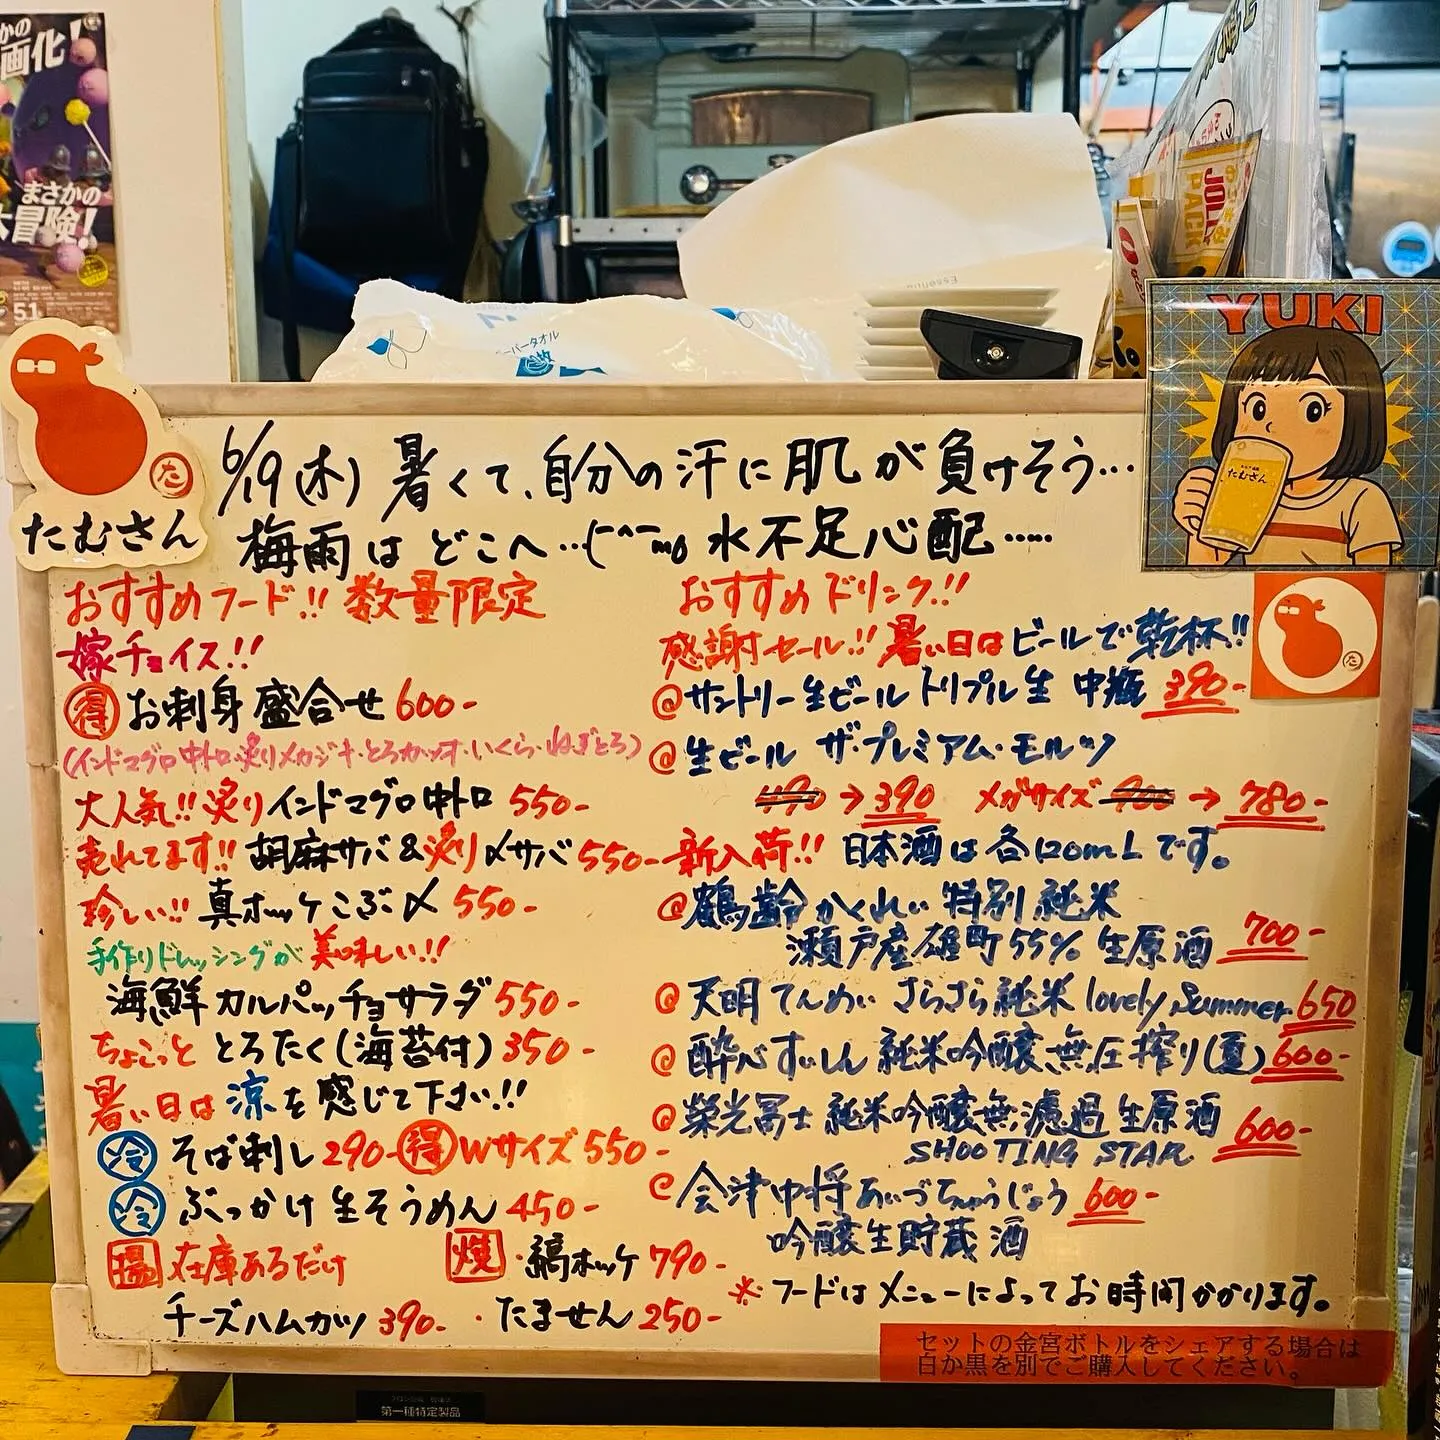 画化!
まさかの
大冒険!
51
JOLLY
PACK
ペーパータオル
YUKI
たむさん
た
たむさん
6/19(木)暑くて、自分の汗に肌が負けそう…
梅雨はどこへ… 水不足心配…..
おすすめフード!! 数量限定
嫁チョイス!!
得 お刺身盛合せ 600-
(インドマグロ中トロ・炙りメカジキ・とろカツオ・いくら・ねぎとろ)
大人気!! 炙りインドマグロ中トロ 550-
売れてます!! 胡麻サバ&炙り〆サバ 550-
珍しい!! 真ホッケこぶ〆 550-
手作りドレッシングが美味しい!!
海鮮カルパッチョサラダ 550-
ちょこっと とろたく(海苔付) 350-
暑い日は涼を感じて下さい!!
冷 そば刺し 290- 得 Wサイズ 550-
冷 ぶっかけ生そうめん 450-
揚 在庫あるだけ
焼 ・縞ホッケ 790-
チーズハムカツ 390- ・たません 250-
おすすめドリンク!!
感謝セール!! 暑い日はビールで乾杯!!
@サントリー生ビールトリプル生 中瓶 390-
@生ビール ザ・プレミアム・モルツ
490→390 メガサイズ 900→780-
新入荷!! 日本酒は各120mLです。
@鶴齢 かくれい 特別純米
瀬戸産雄町55% 生原酒 700-
@天明てんめい さらさら純米 lovely summer 650
@酔心すいしん 純米吟醸無圧搾り(夏) 600-
@榮光冨士 純米吟醸無濾過生原酒
SHOOTING STAR 600-
@会津中将あいづちゅうじょう 600-
吟醸生貯蔵酒
※フードはメニューによってお時間かかります。
セットの金宮ボトルをシェアする場合は
白か黒を別でご購入してください。
第一種特定製品